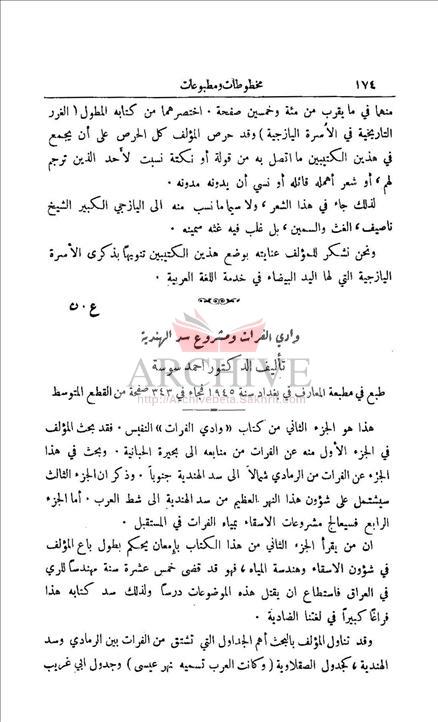 ١٧٤ مخطوطات ومطبوعات
منهما في ما يقرب من مئة وخمسين صفحة ٠ اختصرهما من كتابه المطول ( الغرر
التاريخية في الأسرة اليازجية ) وقد حرص المؤلف كل الحرص على أن يجمع
في هذين الكتيبين ما اتصل به من قولة أو نكتة نسبت لأحد الذين ترجم
لهم ، أو شعر أهمله قائله أو نسي أن يدونه مدونه ٠
لذلك جاء في هذا الشعر ، ولا سيما ما نسب منه الى اليازجي الكبير الشيخ
ناصيف ، الغث والسمين ، بل غلب فيه غثه سمينه ٠
ونحن نشكر للمؤلف عنايته بوضع هذين الكتيبين تنويهاً بذكرى الأسرة
اليازجية التي لها اليد البيضاء في خدمة اللغة العربية ٠
ع ٠ ن
وادي الفرات ومشروع سد الهندية
تأليف الدكتور احمد سوسة
ARCHIVE
طبع في مطبعة المعارف في بغداد سنة ١٩٤٥ فجاء في ٣٤٣ صفحة من القطع المتوسط
http://Archivebeta.Sakhrit.com
هذا هو الجزء الثاني من كتاب « وادي الفرات » النفيس ٠ فقد بحث المؤلف
في الجزء الأول منه عن الفرات من منابعه الى بحيرة الحبانية ٠ وبحث في هذا
الجزء عن الفرات من الرمادي شمالاً الى سد الهندية جنوباً ٠ وذكر ان الجزء الثالث
سيشتمل على شؤون هذا النهر العظيم من سد الهندية الى شط العرب ٠ أما الجزء
الرابع فسيعالج مشروعات الاسقاء بمياه الفرات في المستقبل ٠
ان من يقرأ الجزء الثاني من هذا الكتاب بإمعان يحكم بطول باع المؤلف
في شؤون الاسقاء وهندسة المياه ، فهو قد قضى خمس عشرة سنة مهندساً للري
في العراق فاستطاع ان يقتل هذه الموضوعات درساً ولذلك سد كتابه هذا
فراغاً كبيراً في لغتنا الضادية ٠
وقد تناول المؤلف بالبحث أهم الجداول التي تشتق من الفرات بين الرمادي وسد
الهندية ، كجدول الصقلاوية ( وكانت العرب تسميه نهر عيسى ) وجدول ابي غريب